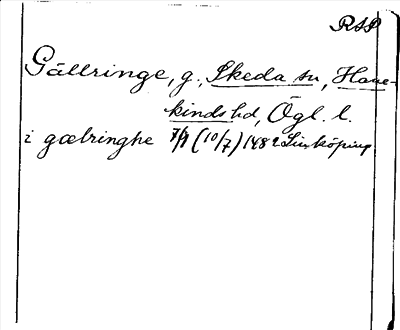 RAP
Gällringe, g., Skeda sn, Hane-
kinds hd, Ögl. l.
i gælringhe (10/7) 1482 Linköping